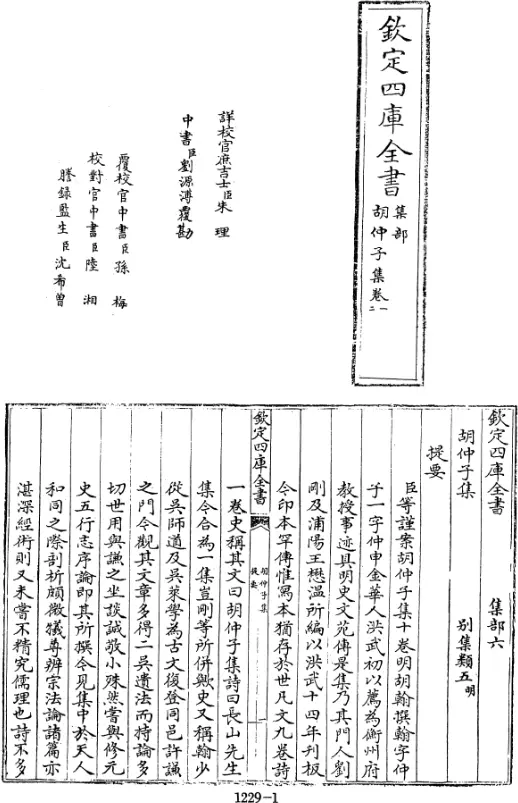 欽定四庫全書
集部
胡仲子集卷一
二
詳校官庶吉士臣朱理
中書臣劉源溥覆勘
覆校官中書臣孫梅
校對官中書臣陸湘
謄錄監生臣沈希曾
欽定四庫全書
集部六
胡仲子集
別集類五明
提要
臣等謹案胡仲子集十卷明胡翰撰翰字仲
子一字仲申金華人洪武初以薦為衢州府
教授事迹具明史文苑傳是集乃其門人劉
剛及浦陽王懋温所編以洪武十四年刊板
今印本罕傳惟寫本猶存於世凡文九卷詩
欽定四庫全書
胡仲子集
提要
一卷史稱其文曰胡仲子集詩曰長山先生
集今合為一集豈剛等所併歟史又稱翰少
從吳師道及吳萊學為古文復登同邑許謙
之門今觀其文章多得二吳遺法而持論多
切世用與謙之坐談誠敬小殊然嘗與修元
史五行志序論即其所撰今見集中於天人
和同之際剖析頗微犧尊辨宗法論諸篇亦
湛深經術則又未嘗不精究儒理也詩不多
1229-1